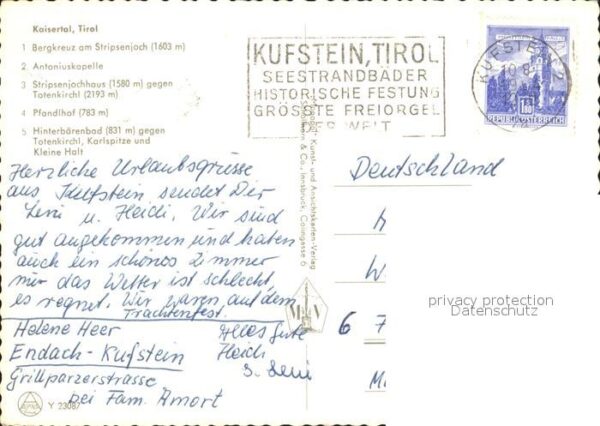 Kaisertal, Tirol
1 Bergkreuz am Stripsenjoch (1603 m)
2 Antoniuskapelle
3 Stripsenjochhaus (1580 m) gegen
Totenkirchl (2193 m)
4 Pfandlhof (783 m)
5 Hinterbärenbad (831 m) gegen
Totenkirchl, Karlspitze und
Kleine Halt
KUFSTEIN, TIROL
SEESTRANDBÄDER
HISTORISCHE FESTUNG
GRÖSSTE FREIORGEL
DER WELT
KUFSTEIN 2
REPUBLIK ÖSTERREICH
Herzliche Urlaubsgrüsse
aus Kufstein sendet Dir
Leni u. Heidi. Wir sind
gut angekommen und haben
auch ein schönes Zimmer
nur das Wetter ist schlecht,
es regnet. Wir waren auf dem
Trachtenfest.
Helene Heer
Endach-Kufstein
Grillparzerstrasse
bei Fam. Amort
Alles Gute
Heidi
u. Leni
Kunst- und Ansichtskarten-Verlag
& Co., Innsbruck, Coingasse 6
Deutschland
W
6 7
M
privacy protection
Datenschutz
Y 23087